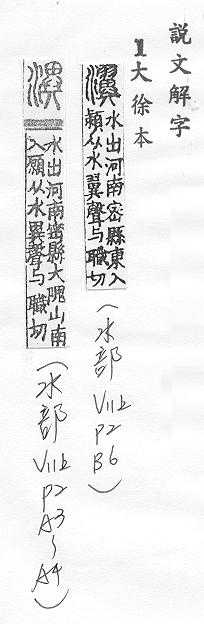 説文解字
1大徐本
瀷
水出河南密縣東入
潁从水翼聲与職切
(水部 V11上 P2 B6)
潩
水出河南密縣大隗山南
入潁从水異聲与職切
(水部 V11上 P2 A3~A4)